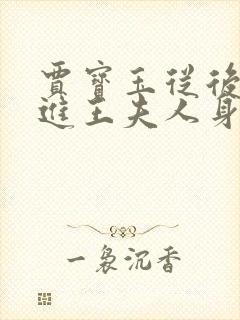 賈寶玉從後
進王夫人身
一裊沉香